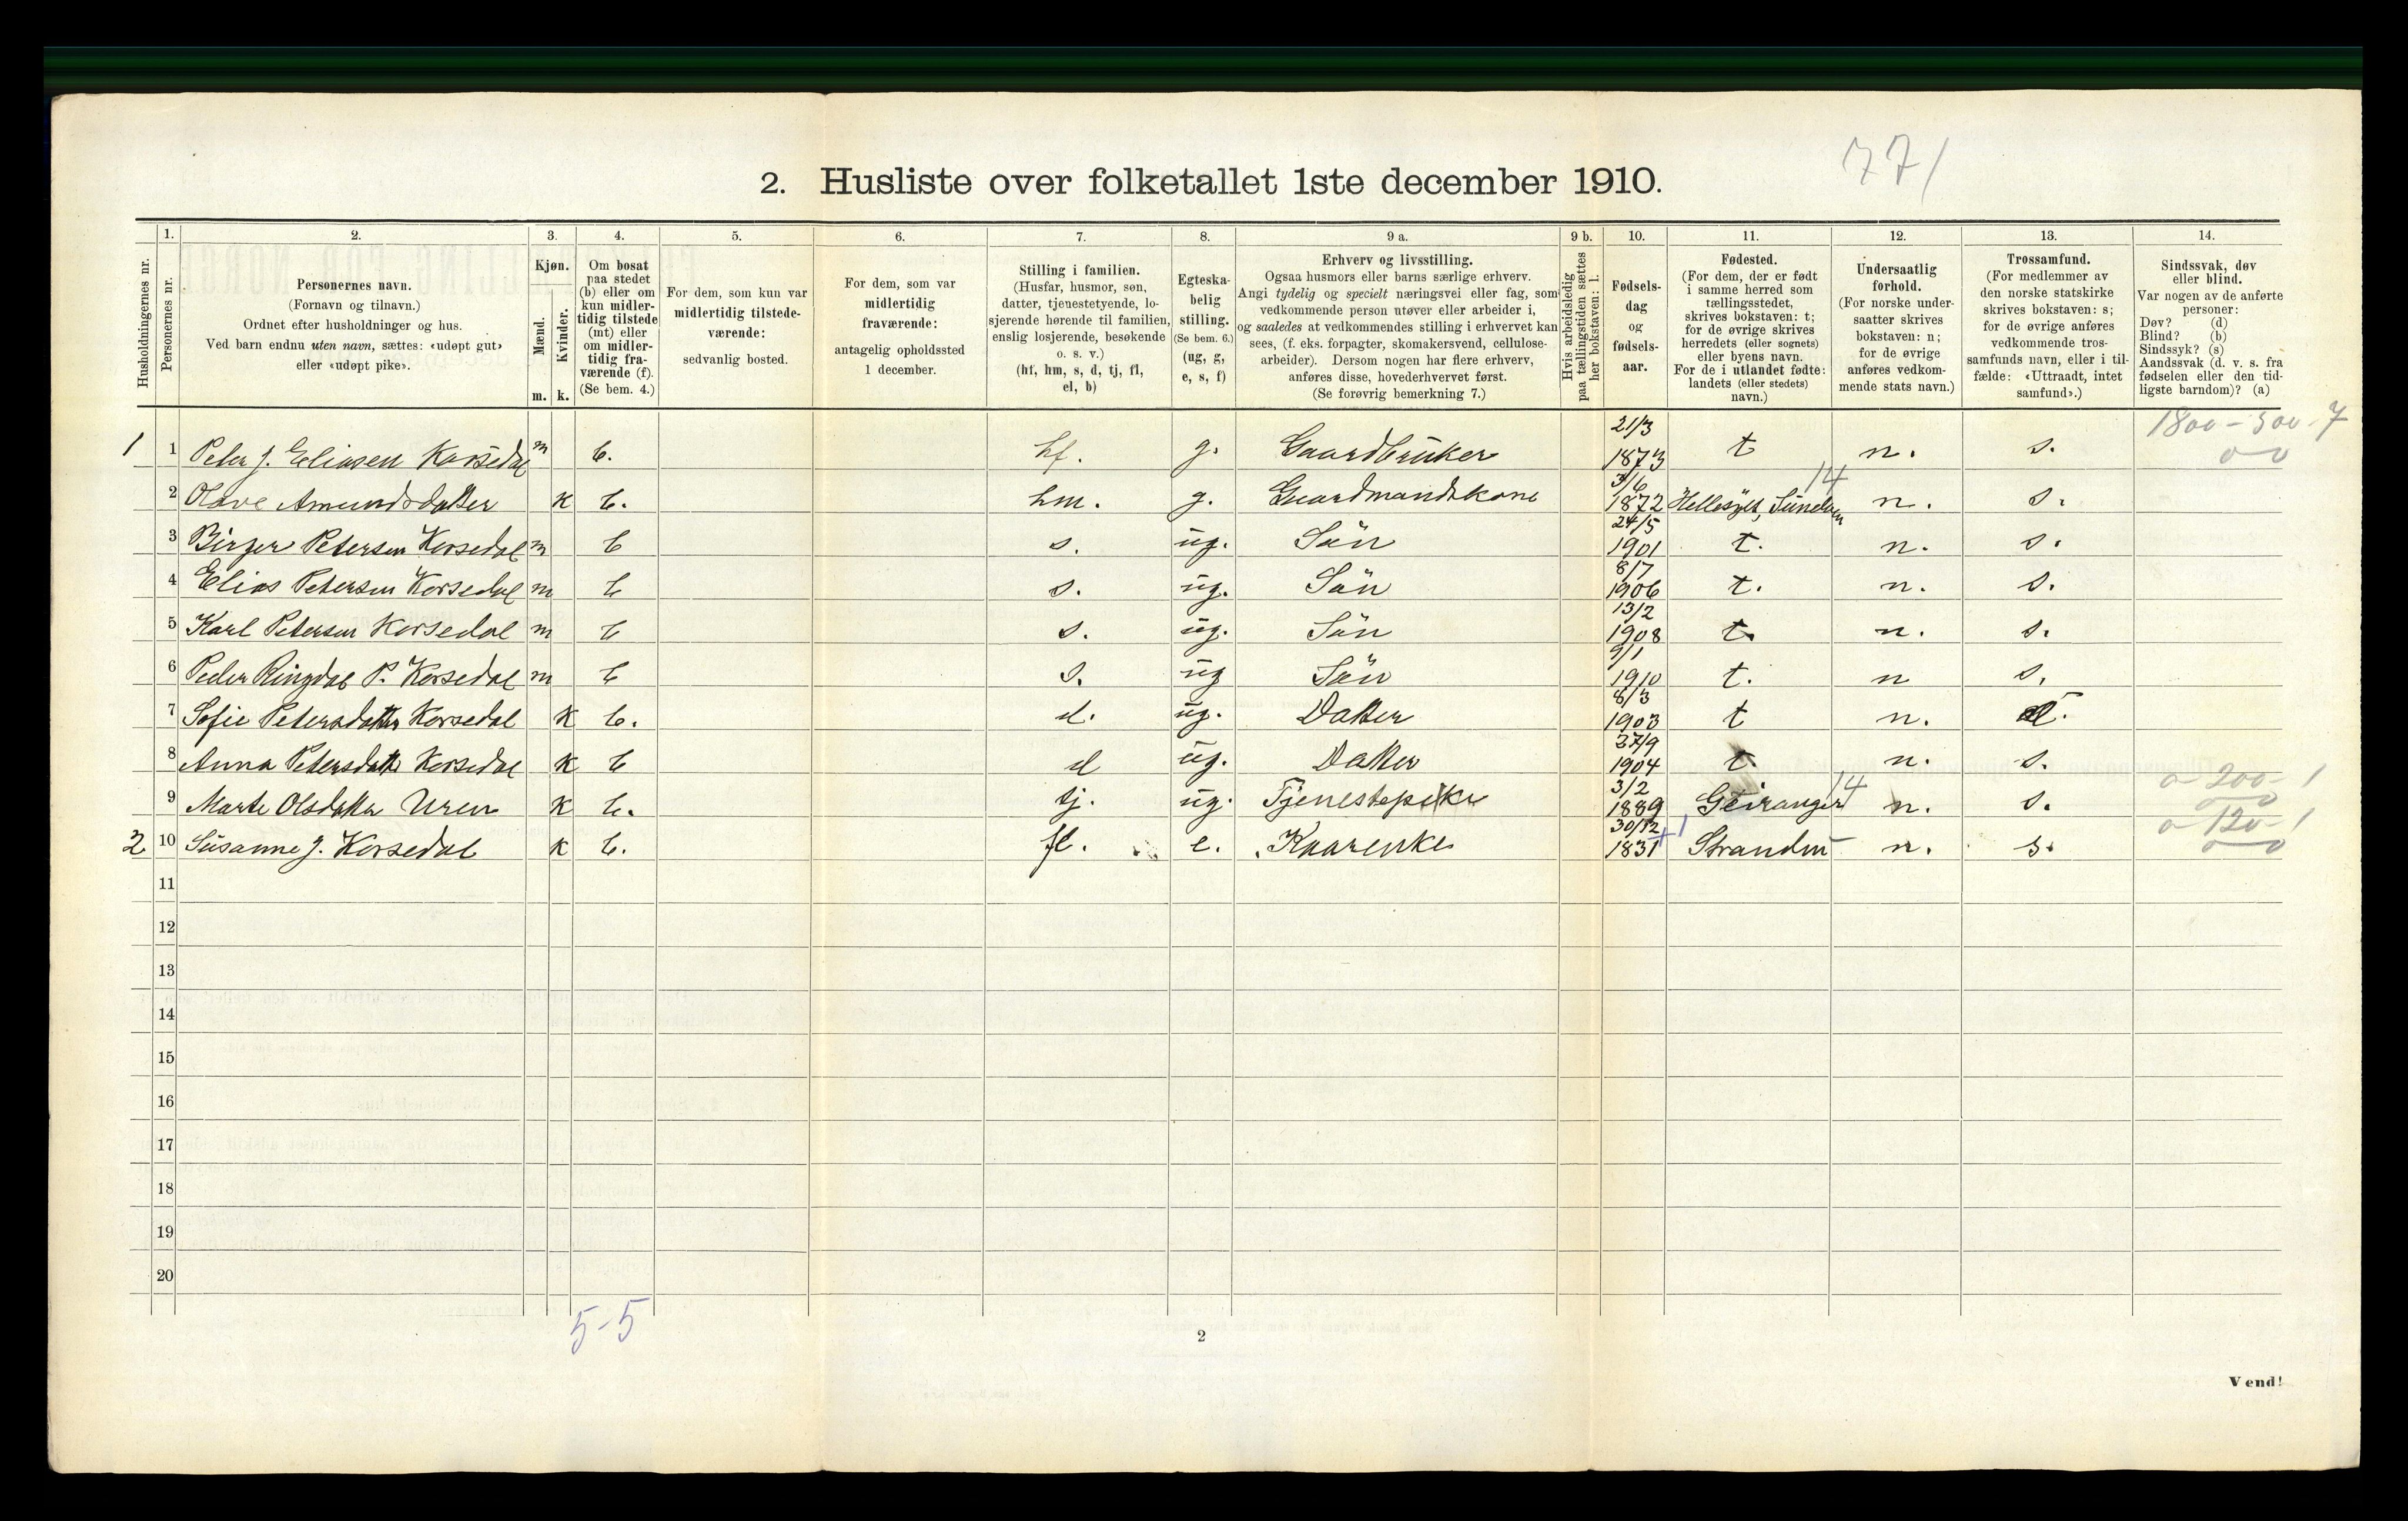 771
2. Husliste over folketallet 1ste december 1910.
Husholdningernes nr.
1.
Personernes nr.
2.
Personernes navn.
(Fornavn og tilnavn.)
Ordnet efter husholdninger og hus.
Ved barn endnu uten navn, sættes: «udøpt gut»
eller «udøpt pike».
3.
Kjøn.
Mænd.
Kvinder.
m. k.
4.
Om bosat
paa stedet
(b) eller om
kun midler-
tidig tilstede
(mt) eller
om midler-
tidig fra-
værende (f).
(Se bem. 4.)
5.
For dem, som kun var
midlertidig tilstede-
værende:
sedvanlig bosted.
6.
For dem, som var
midlertidig
fraværende:
antagelig opholdssted
1 december.
7.
Stilling i familien.
(Husfar, husmor, søn,
datter, tjenestetyende, lo-
sjerende hørende til familien,
enslig losjerende, besøkende
o. s. v.)
(hf, hm, s, d, tj, fl,
el, b)
8.
Egteska-
belig
stilling.
(Se bem. 6.)
(ug, g,
e, s, f)
9 a.
Erhverv og livsstilling.
Ogsaa husmors eller barns særlige erhverv.
Angi tydelig og specielt næringsvei eller fag, som
vedkommende person utøver eller arbeider i,
og saaledes at vedkommendes stilling i erhvervet kan
sees, (f. eks. forpagter, skomakersvend, cellulose-
arbeider). Dersom nogen har flere erhverv,
anføres disse, hovederhvervet først.
(Se forøvrig bemerkning 7.)
9 b.
Hvis arbeidsledig
paa tællingstiden sættes
her bokstaven: l.
10.
Fødsels-
dag
og
fødsels-
aar.
11.
Fødested.
(For dem, der er født
i samme herred som
tællingsstedet,
skrives bokstaven: t;
for de øvrige skrives
herredets (eller sognets)
eller byens navn.
For de i utlandet fødte:
landets (eller stedets)
navn.)
12.
Undersaatlig
forhold.
(For norske under-
saatter skrives
bokstaven: n;
for de øvrige
anføres vedkom-
mende stats navn.)
13.
Trossamfund.
(For medlemmer av
den norske statskirke
skrives bokstaven: s;
for de øvrige anføres
vedkommende tros-
samfunds navn, eller i til-
fælde: «Uttraadt, intet
samfund».)
14.
Sindssvak, døv
eller blind.
Var nogen av de anførte
personer:
Døv? (d)
Blind? (b)
Sindssyk? (s)
Aandssvak (d. v. s. fra
fødselen eller den tid-
ligste barndom)? (a)
1 1 Peter J. Eliasen Korsedal m b. hf. g. Gaardbruker 21/3 1873 t n. s. 1800-500-7
2 Olave Amundsdatter k b. hm. g. Gaardmandskone 3/6 1872 Hellesylt, 14 n. s.
3 Birger Petersen Korsedal m b s. ug. Sön 24/5 1901 t. n. s.
4 Elias Petersen Korsedal m b s. ug. Sön 8/7 1906 t. n. s.
5 Karl Petersen Korsedal m b s. ug. Sön 13/2 1908 t. n. s.
6 Peder Ringdal P. Korsedal m b s. ug Sön 9/1 1910 t. n s.
7 Sofie Petersdatter Korsedal k b. d. ug. Datter 8/3 1903 t n.
8 Anna Petersdatt Korsedal k b d ug. Datter 27/9 1904 t. n. s.
9 Marte Olsdatter Uren k b. tj. ug. Tjenestepike 3/2 1889 Geiranger 14 n. s. 0-200-1
2 10 Susanne J. Korsedal k b. fl. e. Kaarenke 30/12 1831 Stranden n. s. 0-120-1
11
12
13
14
15
16
17
18
19
20
5-5
2
Vend!